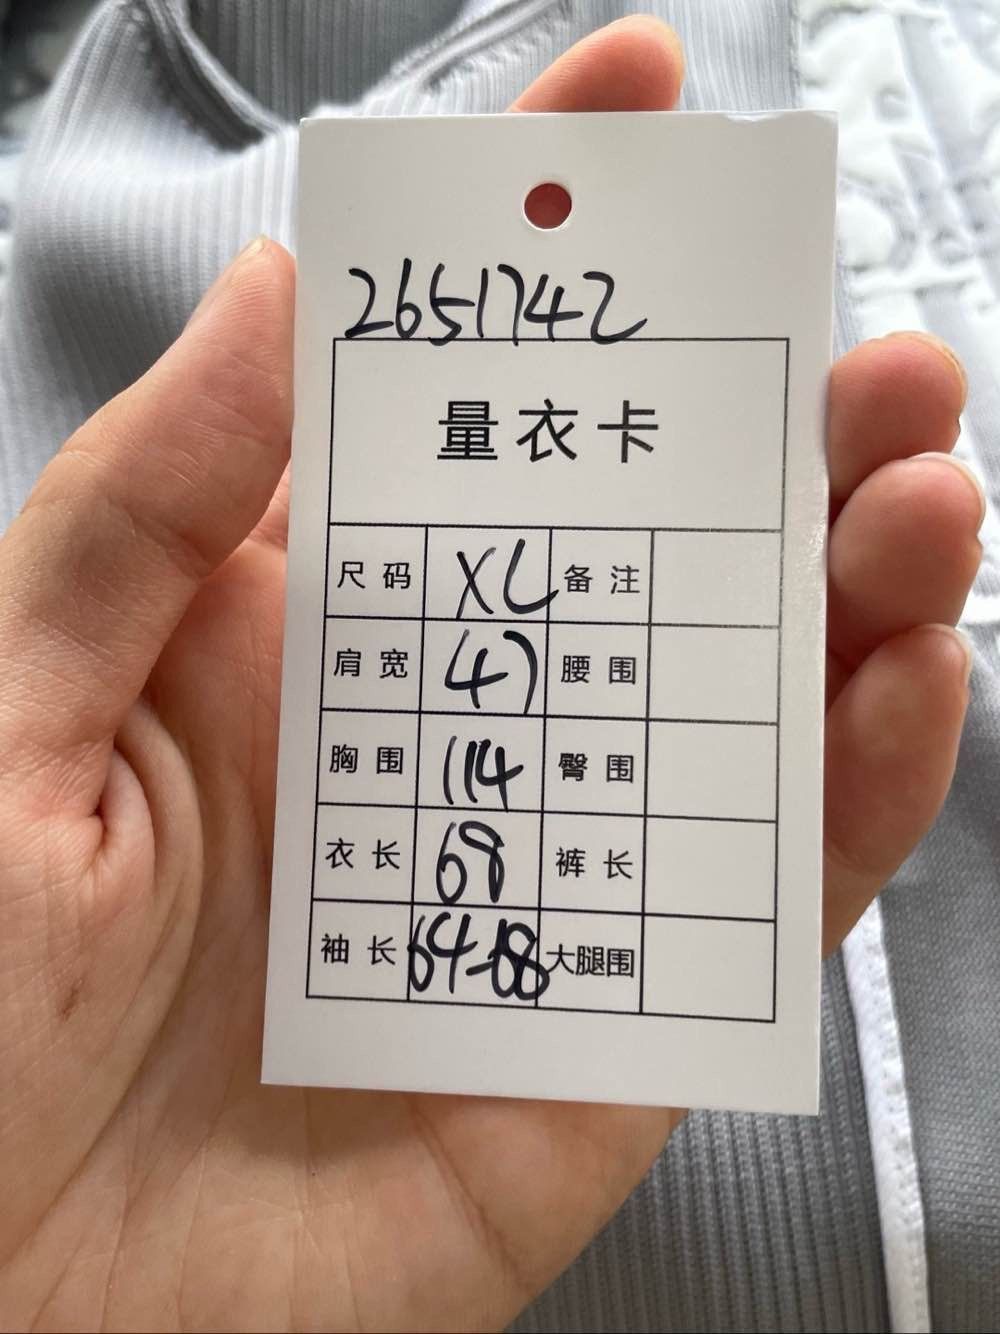 2651742
量衣卡
尺码 XL 备注
肩宽 47 腰围
胸围 114 臀围
衣长 68 裤长
袖长 64-68 大腿围